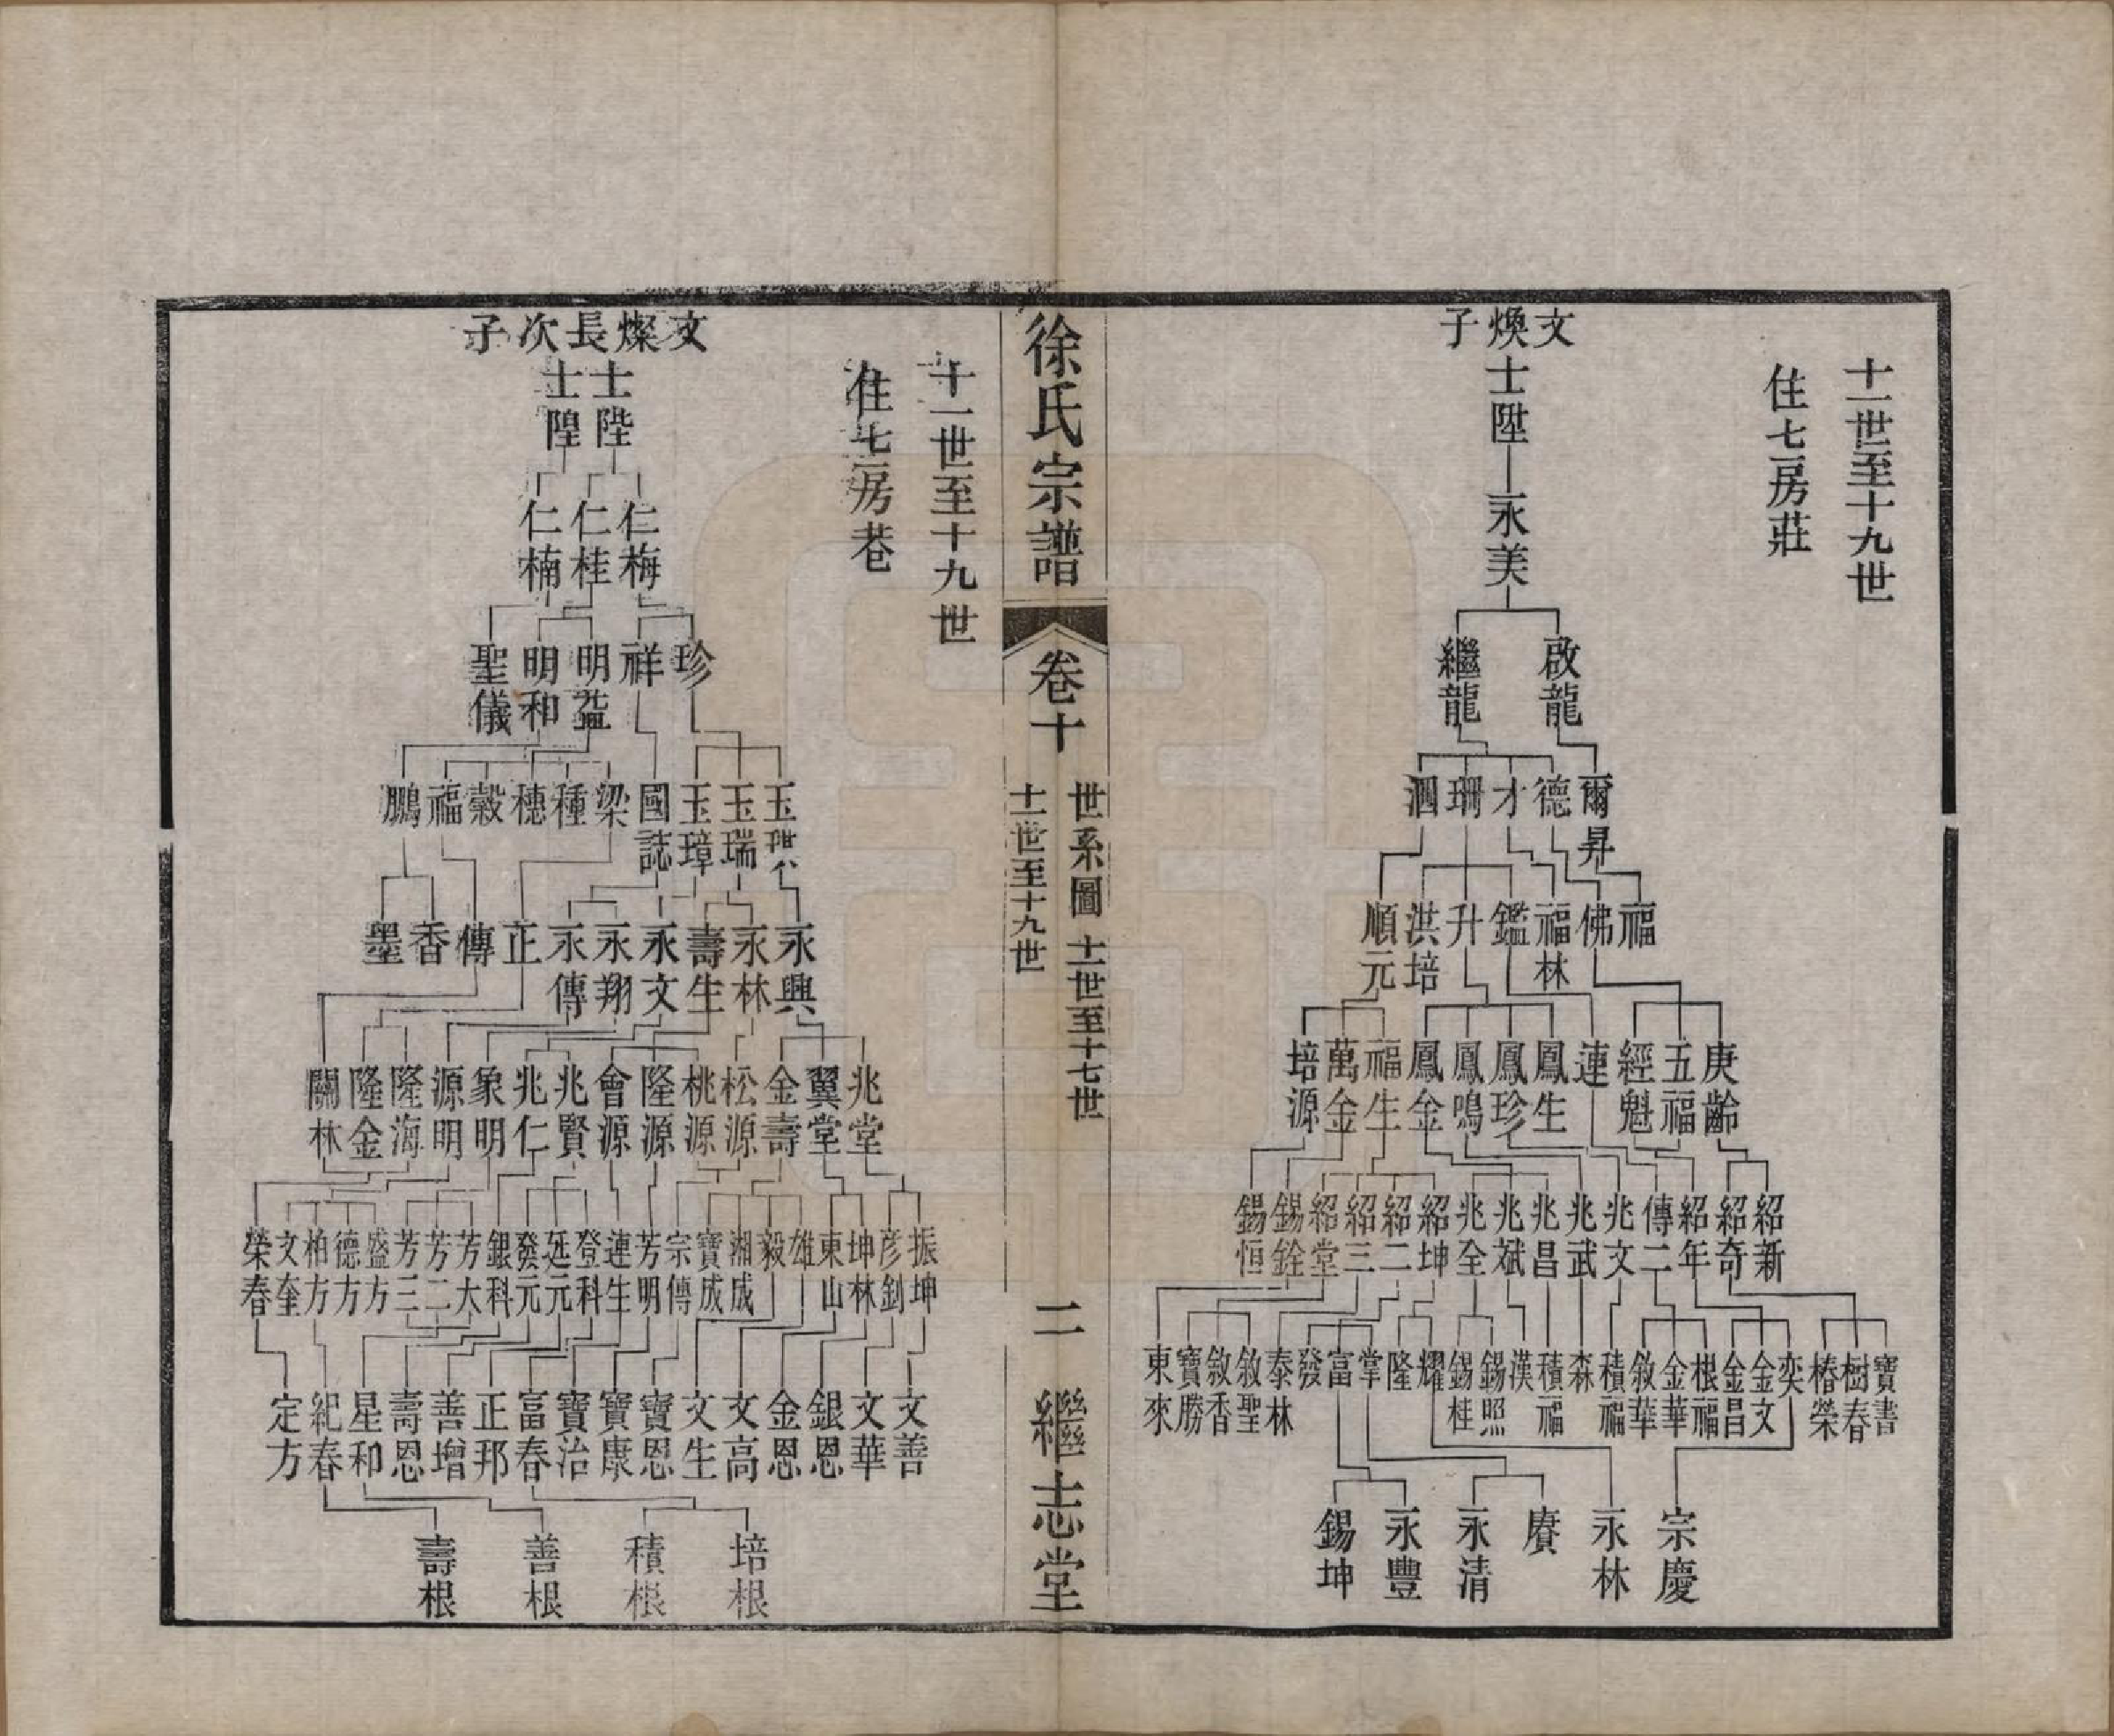 十一世至十九世
住七房莊
文煥子
士陞
永美
啟龍
繼龍
爾昇
德
才
珊
福
佛
福林
鑑
升
洪培
順元
庚齡
五福
經魁
連
鳳生
鳳珍
鳳鳴
鳳金
福生
萬金
培源
紹新
紹奇
紹年
傳二
兆文
兆武
兆昌
兆斌
兆全
紹坤
紹二
紹三
紹堂
錫銓
錫恒
寶書
樹春
椿榮
奕
金文
金昌
根福
金華
敘華
積福
森
積福
漢
錫照
錫桂
耀
隆
掌
富
發
泰林
敘聖
敘香
寶勝
東來
宗慶
永林
賡
永清
永豐
錫坤
徐氏宗譜
卷十
世系圖 十一世至十七世
十一世至十九世
二
繼志堂
十一世至十九世
住七房巷
文燦長次子
士陛
士隍
仁梅
仁桂
仁楠
珍
祥
明益
明和
聖儀
玉
玉瑞
玉璋
國誌
梁
種
穗
穀
福
鵬
永興
永林
壽生
永文
永翔
永傳
正
傳
香
墨
兆堂
翼堂
金壽
松源
桃源
隆源
會源
兆賢
兆仁
象明
源明
隆海
隆金
關林
振坤
彥釗
坤林
東山
雄
毅
湘成
寶成
宗傳
芳明
連生
登科
廷元
發元
銀科
芳大
芳二
芳三
盛方
德方
柏方
文奎
榮春
文善
文華
銀恩
金恩
文高
文生
寶恩
寶康
寶治
富春
正邦
善增
壽恩
星和
紀春
定方
培根
積根
善根
壽根